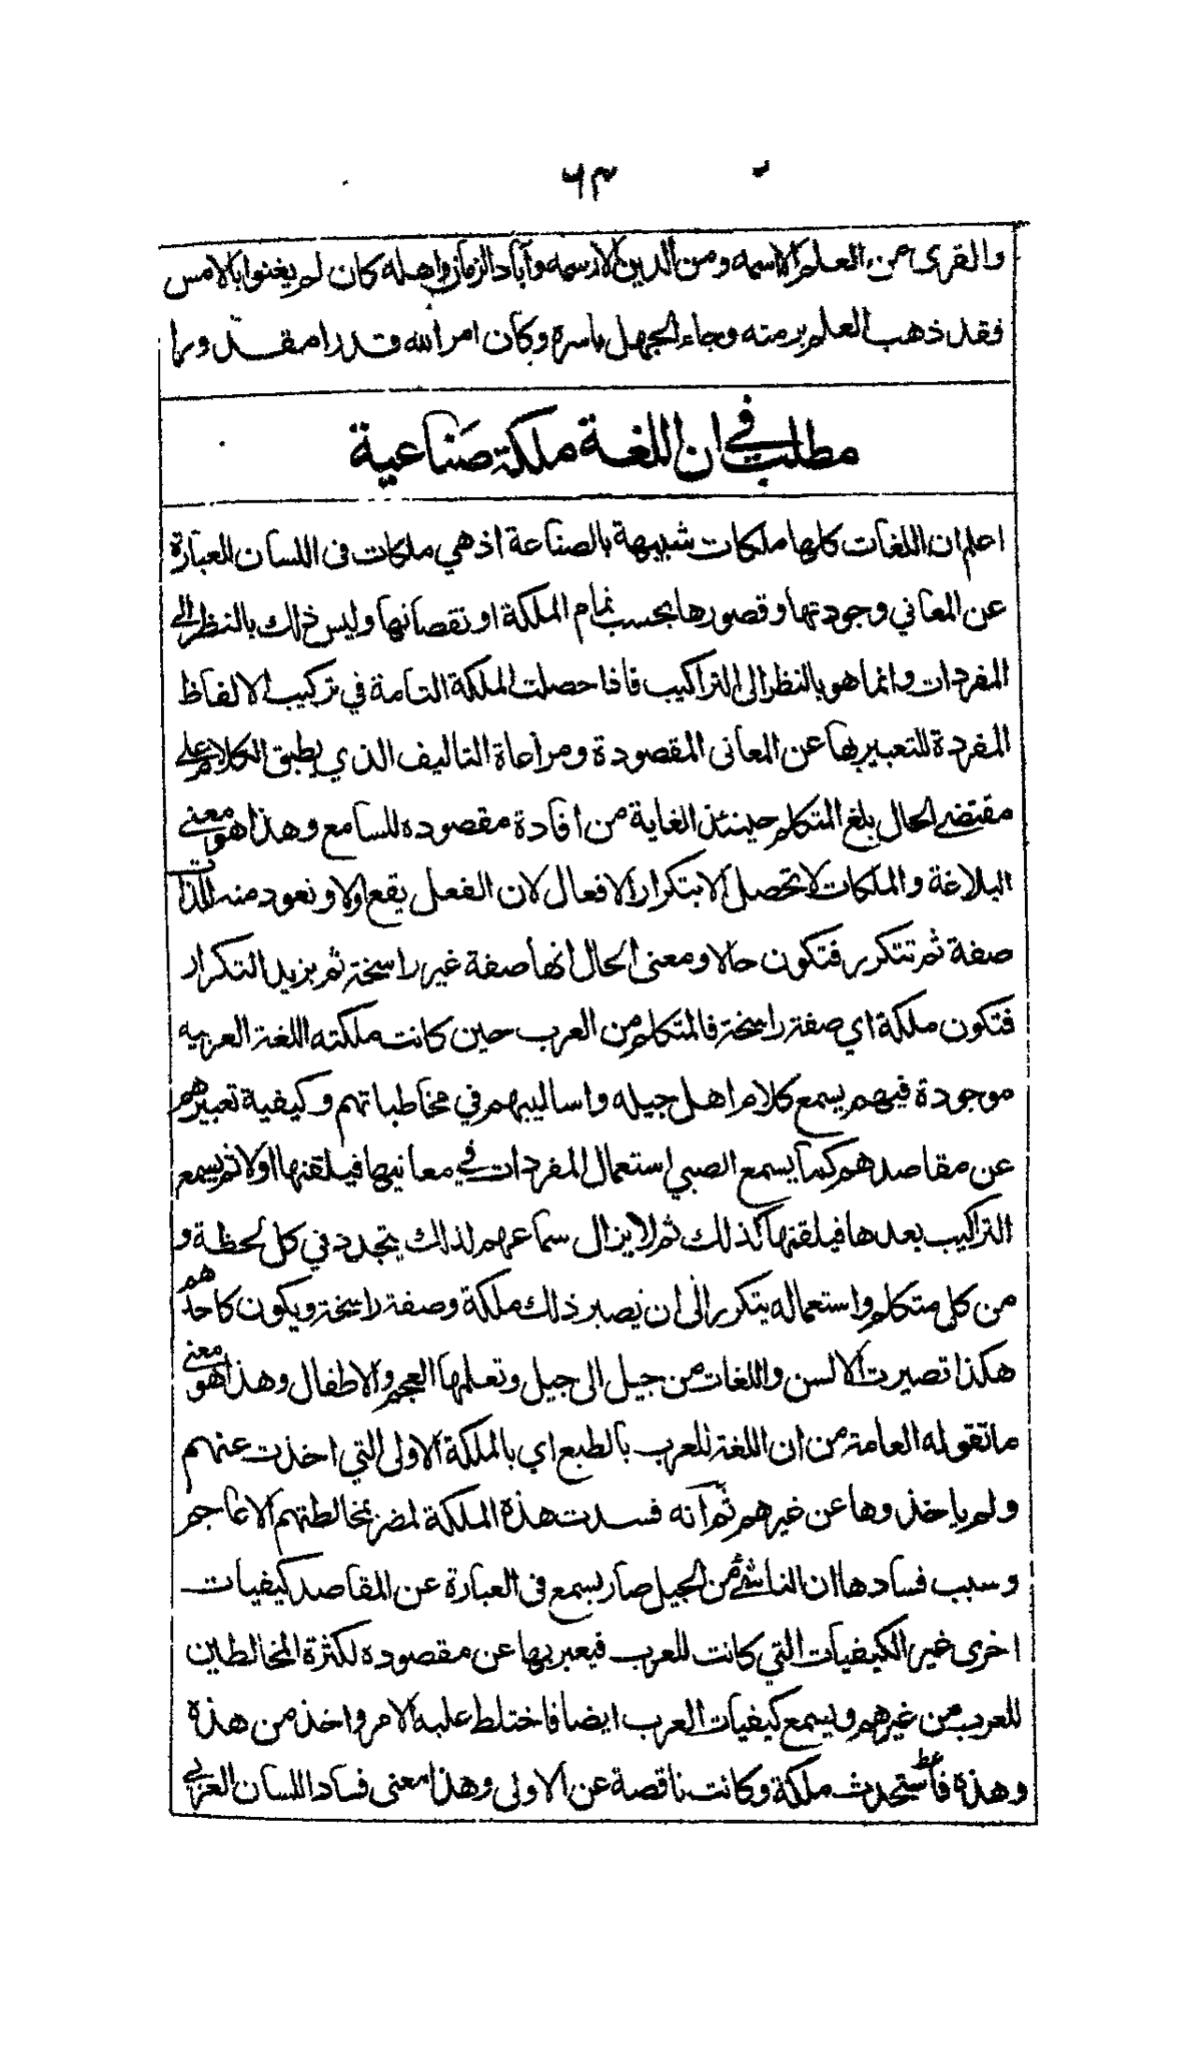 ٦٣
والقرى من العلم الا اسمه ومن الدين الا رسمه وآباد الزمان واهله كان لم يغنوا بالامس
فقد ذهب العلم برمته وجاء الجهل باسره وكان امر الله قدرا مقدورا
مطلب في ان اللغة ملكة صناعية
اعلم ان اللغات كلها ملكات شبيهة بالصناعة اذ هي ملكات فى اللسان للعبارة
عن المعاني وجودتها وقصورها بحسب تمام الملكة او نقصانها وليس ذلك بالنظر الى
المفردات وانما هو بالنظر الى التراكيب فاذا حصلت الملكة التامة في تركيب الالفاظ
المفردة للتعبير بها عن المعانى المقصودة ومراعاة التاليف الذي يطبق الكلام على
مقتضى الحال بلغ المتكلم حينئذ الغاية من افادة مقصوده للسامع وهذا هو معنى
البلاغة والملكات لا تحصل الا بتكرار الافعال لان الفعل يقع اولا وتعود منه للذات
صفة ثم تتكرر فتكون حالا ومعنى الحال انها صفة غير راسخة ثم يزيد التكرار
فتكون ملكة اي صفة راسخة فالمتكلم من العرب حين كانت ملكته اللغة العربيه
موجودة فيهم يسمع كلام اهل جيله واساليبهم في مخاطباتهم وكيفية تعبيرهم
عن مقاصدهم كما يسمع الصبي استعمال المفردات في معانيها فيلقنها اولا ثم يسمع
التراكيب بعدها فيلقنها كذلك ثم لا يزال سماعهم لذلك يتجدد في كل لحظة و
من كل متكلم واستعماله يتكرر الى ان يصير ذلك ملكة وصفة راسخة ويكون كاحدهم
هكذا تصيرت الالسن واللغات من جيل الى جيل وتعلمها العجم والاطفال وهذا هو معنى
ما تقوله العامة من ان اللغة للعرب بالطبع اي بالملكة الاولى التي اخذت عنهم
ولم ياخذوها عن غيرهم ثم انه فسدت هذه الملكة لمضر بمخالطتهم الاعاجم
وسبب فسادها ان الناشئ من الجيل صار يسمع فى العبارة عن المقاصد كيفيات
اخرى غير الكيفيات التي كانت للعرب فيعبر بها عن مقصوده لكثرة المخالطين
للعرب من غيرهم ويسمع كيفيات العرب ايضا فاختلط عليه الامر واخذ من هذه
وهذه فاستحدث ملكة وكانت ناقصة عن الاولى وهذا معنى فساد اللسان العربي